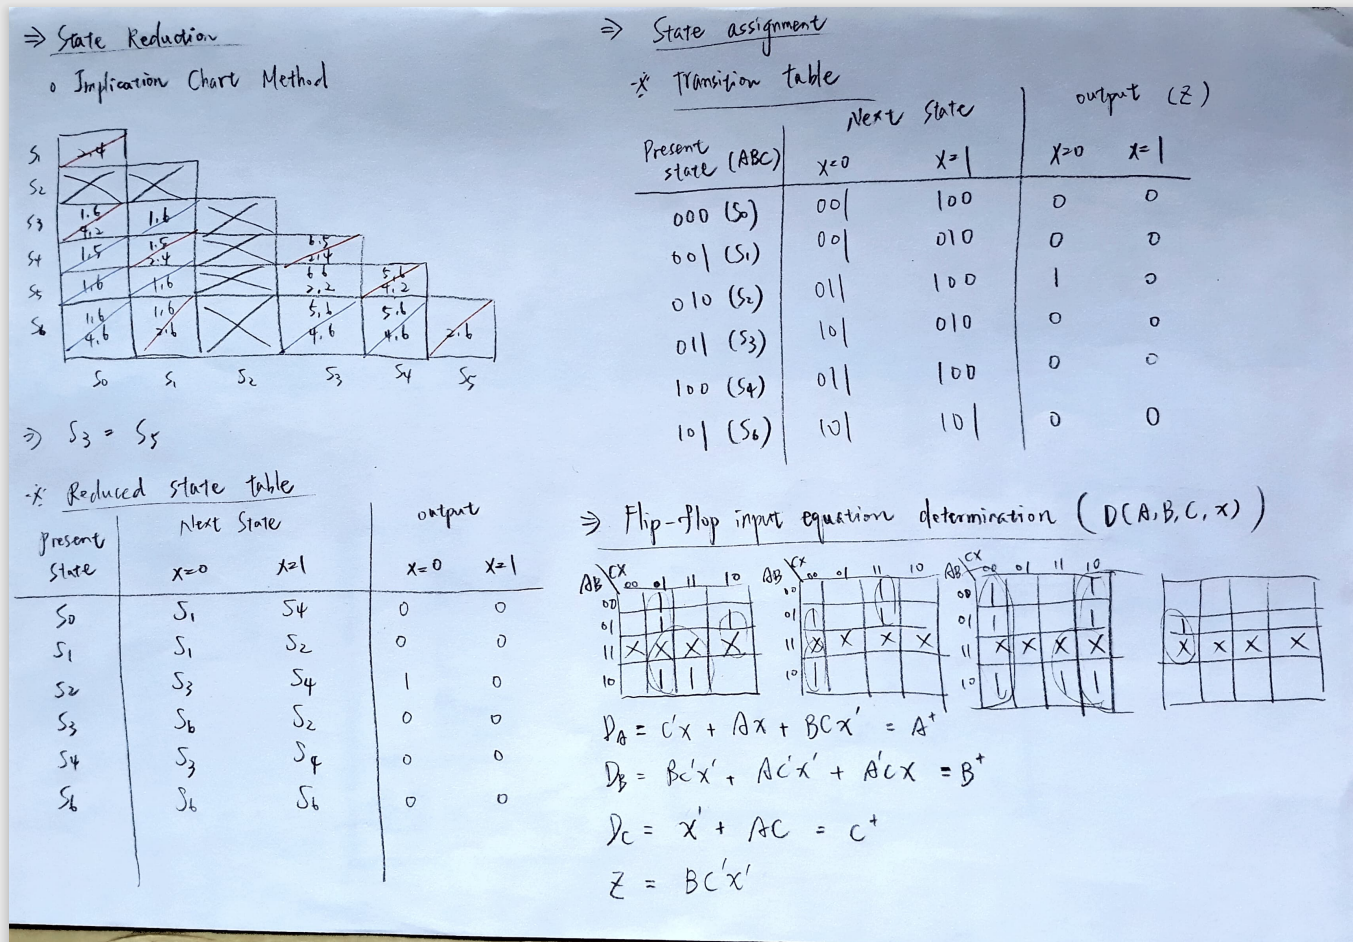 ⇒ State Reduction
o Implication Chart Method
S1 2,4
S2
S3 1.6 4,2 1,6
S4 1,5 1.5 2.4 6.5 2,4
S5 1,6 1,6 6 6 2,2 5,6 4,2
S6 1,6 4,6 1,6 2,6 5,6 4,6 5,6 4,6 2,6
S0 S1 S2 S3 S4 S5
⇒ S3 = S5
※ Reduced state table
Present State Next State output
X=0 X=1 X=0 X=1
S0 S1 S4 0 0
S1 S1 S2 0 0
S2 S3 S4 1 0
S3 S6 S2 0 0
S4 S3 S4 0 0
S6 S6 S6 0 0
⇒ State assignment
※ Transition table
Present state (ABC) Next State output (Z)
X=0 X=1 X=0 X=1
000 (S0) 001 100 0 0
001 (S1) 001 010 0 0
010 (S2) 011 100 1 0
011 (S3) 101 010 0 0
100 (S4) 011 100 0 0
101 (S6) 101 101 0 0
⇒ Flip-flop input equation determination ( D(A,B,C,x) )
AB\CX 00 01 11 10 AB\X 00 01 11 10 AB\CX 00 01 11 10
00 1 00 1 00 1 1 
01 1 1 01 1 1 01 1 1 1
11 X X X X 11 X X X X 11 X X X X X X X X
10 1 1 10 1 10 1 1 1
DA = C'x + Ax + BCx' = A+
DB = BC'x' + AC'x' + A'Cx = B+
DC = x' + AC = C+
Z = BC'x'